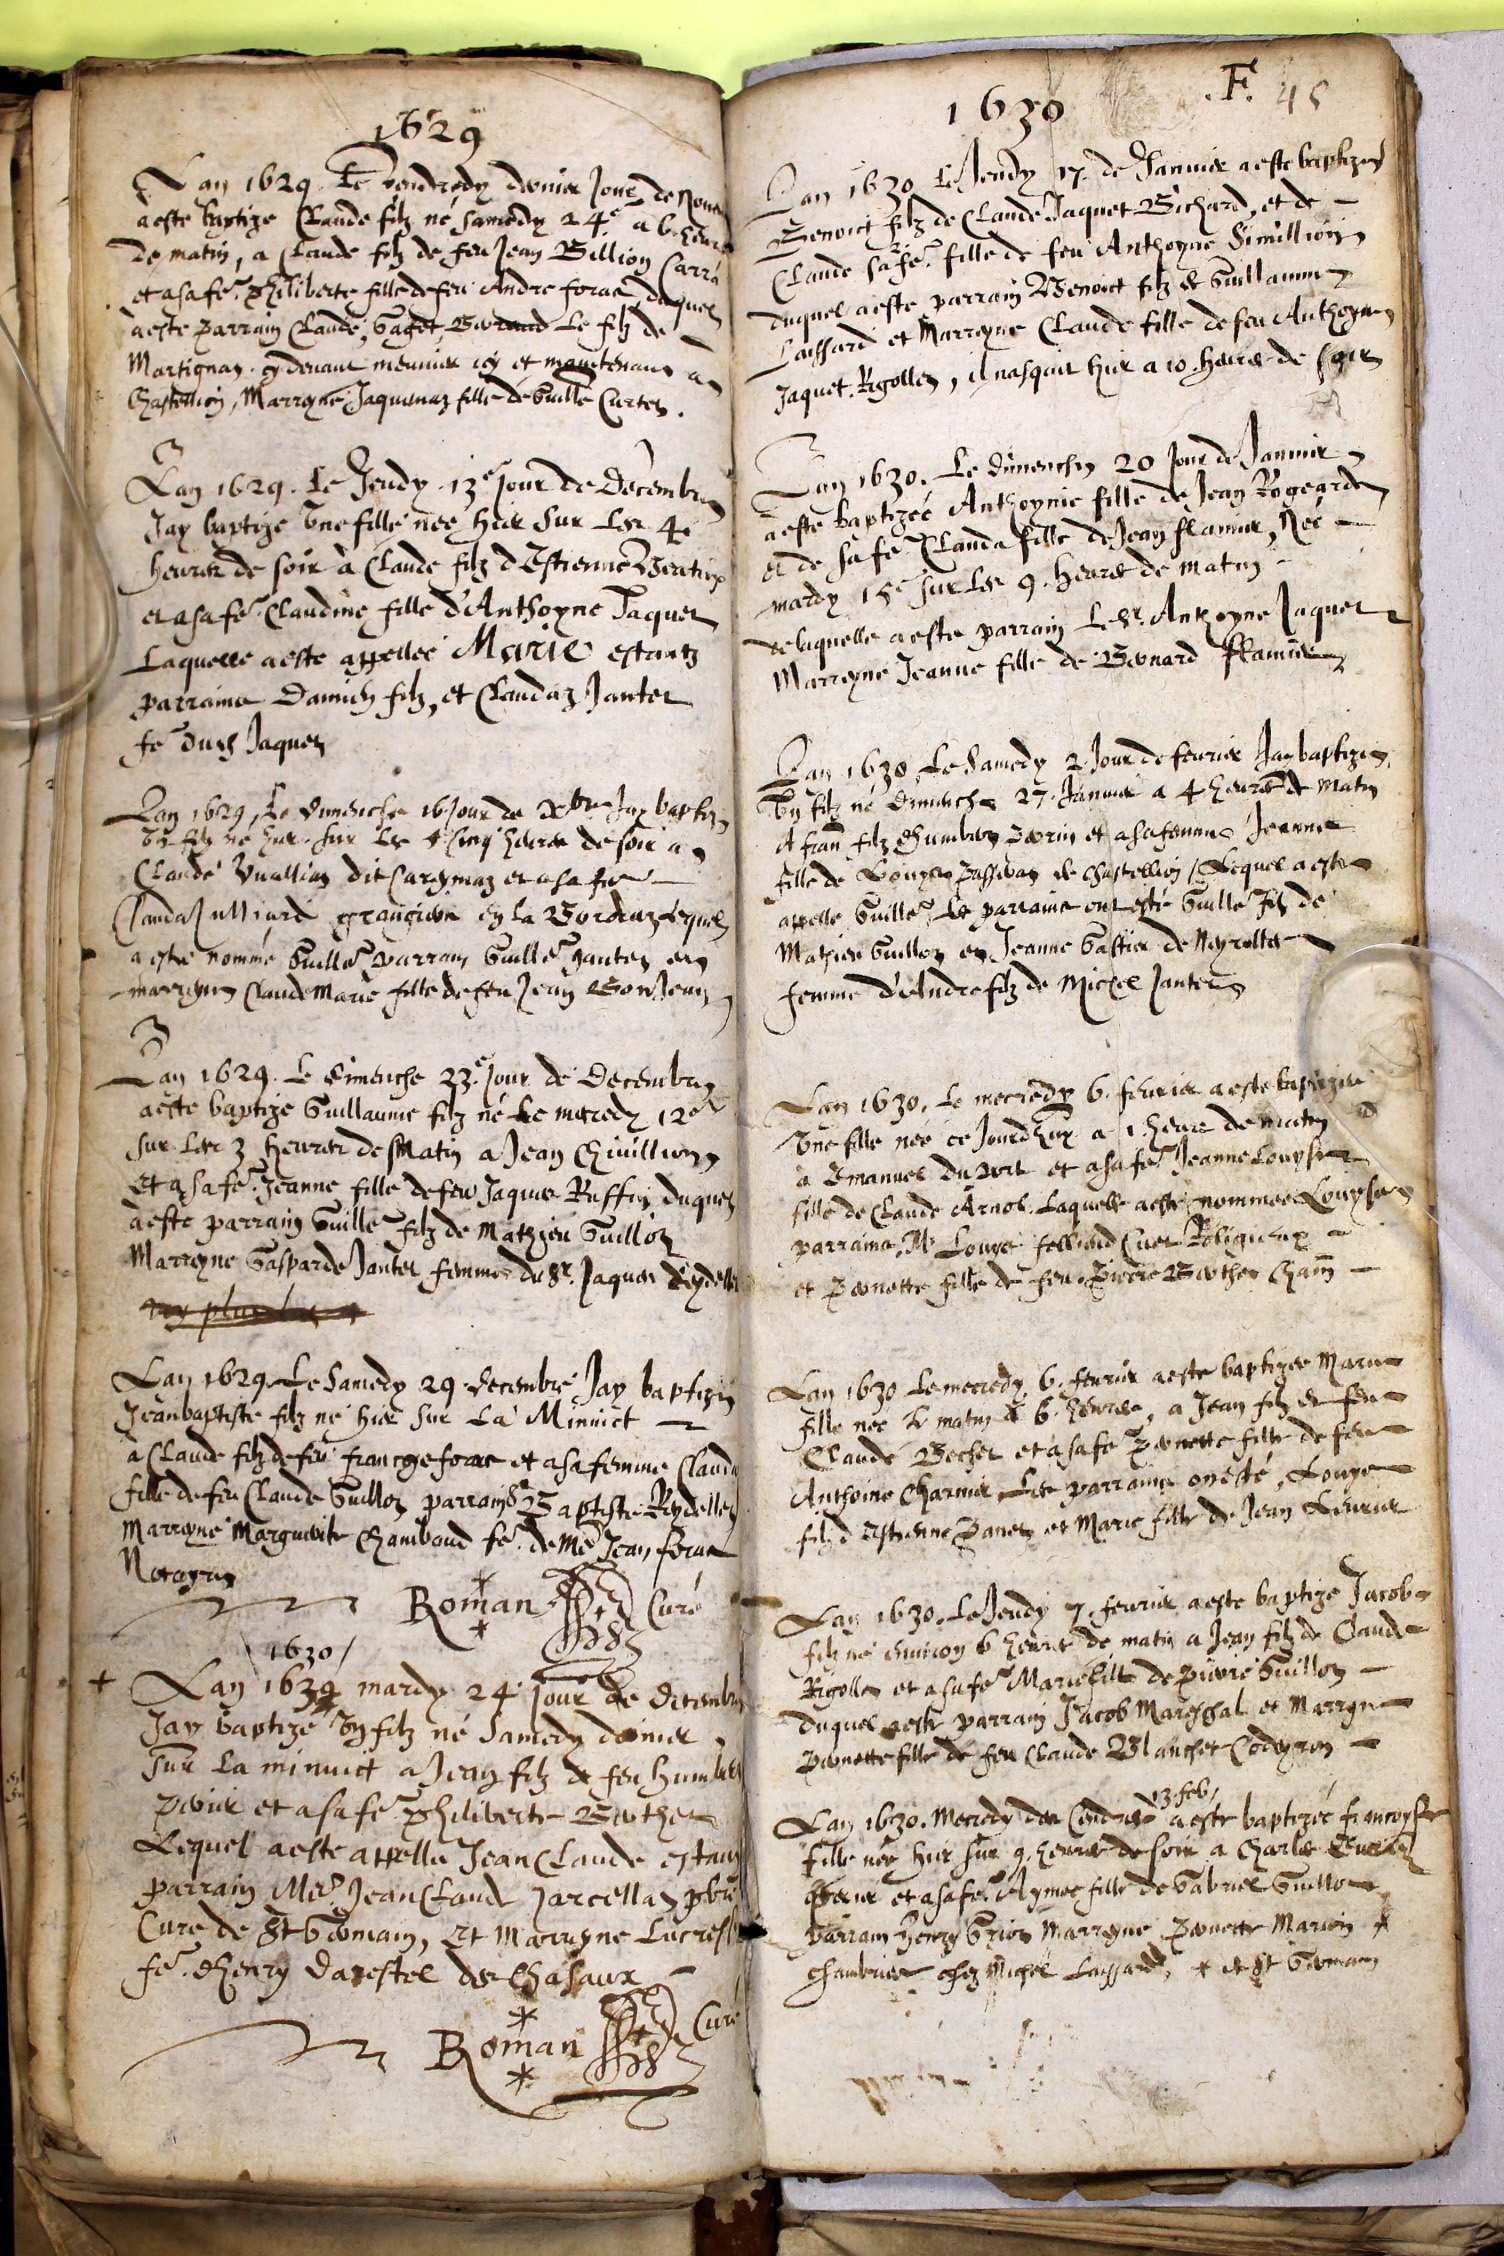 1629
Lan 1629. Le vendredy dernier Jour de Nouem
a este baptize Claude filz né samedy 24.e a 6. heures
de matin, a Claude filz de feu Jean Billion Carra
et a sa fe. Philiberte fille de feu Andre forae duquel
a este parrain Claude, le filz de
Martignaz. cy deuant meunier icy et maintenant a
Chastellion, Marreyne Jaquemaz fille de Guille Curtet.
Lan 1629. Le Jeudy. 13.e Jour de Decembre
Jay baptize vne fille née hier sur les 4.
heures de soir à Claude filz d'Estienne
et a sa fe. Claudine fille d'Anthoyne Jaquet
Laquelle a este appellée Marie estantz
parrains Damien filz, et Claudaz Jantet
fe Jaquet
Lan 1629, Le dimenche 16 Jour de Xbre Jay baptize
vn filz né hier. sur les cinq heures de soir a
Claude Vuallian dit Careymaz et a sa fe
Clauda Julliard grangiers en la lequel
a este nommé Guille parrain Guille Jantet et
marreyne Claude Marie fille de feu Jean Bon Jean
Lan 1629. Le dimenche 23.e Jour de Decembre
a este baptize Guillaume filz né le mecredy 12.e
sur les 3 heures de Matin a Jean Chiuillion
et a sa fe. Jeanne fille de feu Jaques Ruffin, duquel
a este parrain Guille filz de Mathieu Guillot
Marreyne Gasparde Jantet femme du Sr. Jaques Reydellet
Lan 1629. Le Samedy 29. decembre Jay baptize
Jeanbaptiste filz né hier sur La Minuict
à Claude filz de feu francoys forae et a sa femme Clauda
fille de feu Claude Guillot parrain Sr Baptiste Reydellet
Marreyne Marguerite Chamboud fe. de Me Jean forae
Notayre
Roman Curé
1630
+ Lan mardy 24. Jour de Decembre
Jay baptizé vn filz né Samedy dernier
sur La minuict a Jean filz de feu Humbert
Perier et a sa fe Philiberte Berthet
Lequel a este appelle Jean Claude estant
parrain Mre. Jean Claude Jarcellat pbre
Curé de St Germain, et Marreyne Lucresse
fe. d'henry Darestel des Chasaux
Roman Curé
1630 .F. 45
Lan 1630 le Jeudy 17. de Januier a este baptize
Benoict filz de Claude Jaquet Bichard, et de
Claude sa fe. fille de feu Anthoyne Simillion
duquel a este parrain Benoict filz de Guillaume
Laissard et Marreyne Claude fille de feu Anthoyne
Jaquet Rigollet, il nasquit hier a 10. heures de soir
Lan 1630. Le dimenche 20 Jour de Januier
a este baptizée Anthoynie fille de Jean Rogearde
et de sa fe Clauda fille de Jean flamier, Née
mardy 15e sur les 9. heures de matin
de laquelle a este parrain Le Sr. Anthoyne Jaquet
Marreyne Jeanne fille de Bernard flamier
Lan 1630, Le Samedy 2 Jour de feurier Jay baptize
vn filz né dimenche 27. Januier a 4 heures de matin
A fran filz d'humbert Perrin et a sa femme Jeanne
fille de Louys Passerat de Chastellion, Lequel a este
appelle Guille, Les parrains ont esté Guille filz de
Mathieu Guillot et Jeanne Gastier de Neyrolles
femme d'Andre filz de Michel Jantet
Lan 1630. Le mecredy 6. feurier a este baptizée
vne fille née ce Jourdhuy a 1 heure de matin
à Emanuel du port et a sa fe Jeanne Louyse
fille de Claude Arnol. Laquelle a este nommee Louyse
parrains, Mr Louys
et Pernette fille de feu Pierre Berthet
Lan 1630 Le mecredy 6. feurier a este baptizée Marie
fille née le matin a 6. heures, a Jean filz de feu
Claude Becher et a sa fe Pernette fille de feu
Anthoine Charnier, Les parrains onesté, Louys
filz d'Estienne Panet et Marie fille de Jean Leurier
Lan 1630. Le Jeudy 7. feurier a este baptize Jacob
filz né enuiron 6 heures de matin a Jean filz de Claude
Rigollet et a sa fe Marie fille de Pierre Guillot
duquel a este parrain Jacob Mareschal et Marreyne
Pernette fille de feu Claude Blanchet Codeyron
13. feb,
Lan 1630. Mecredy des Cendres a este baptizée francoyse
fille née hier sur 9. heures de soir a Charles
et a sa fe. Aymee fille de Gabriel Guillot
parrain Henry Marreyne Pernette Marion
Chambrier chez Michel Laissard, + et St Germain